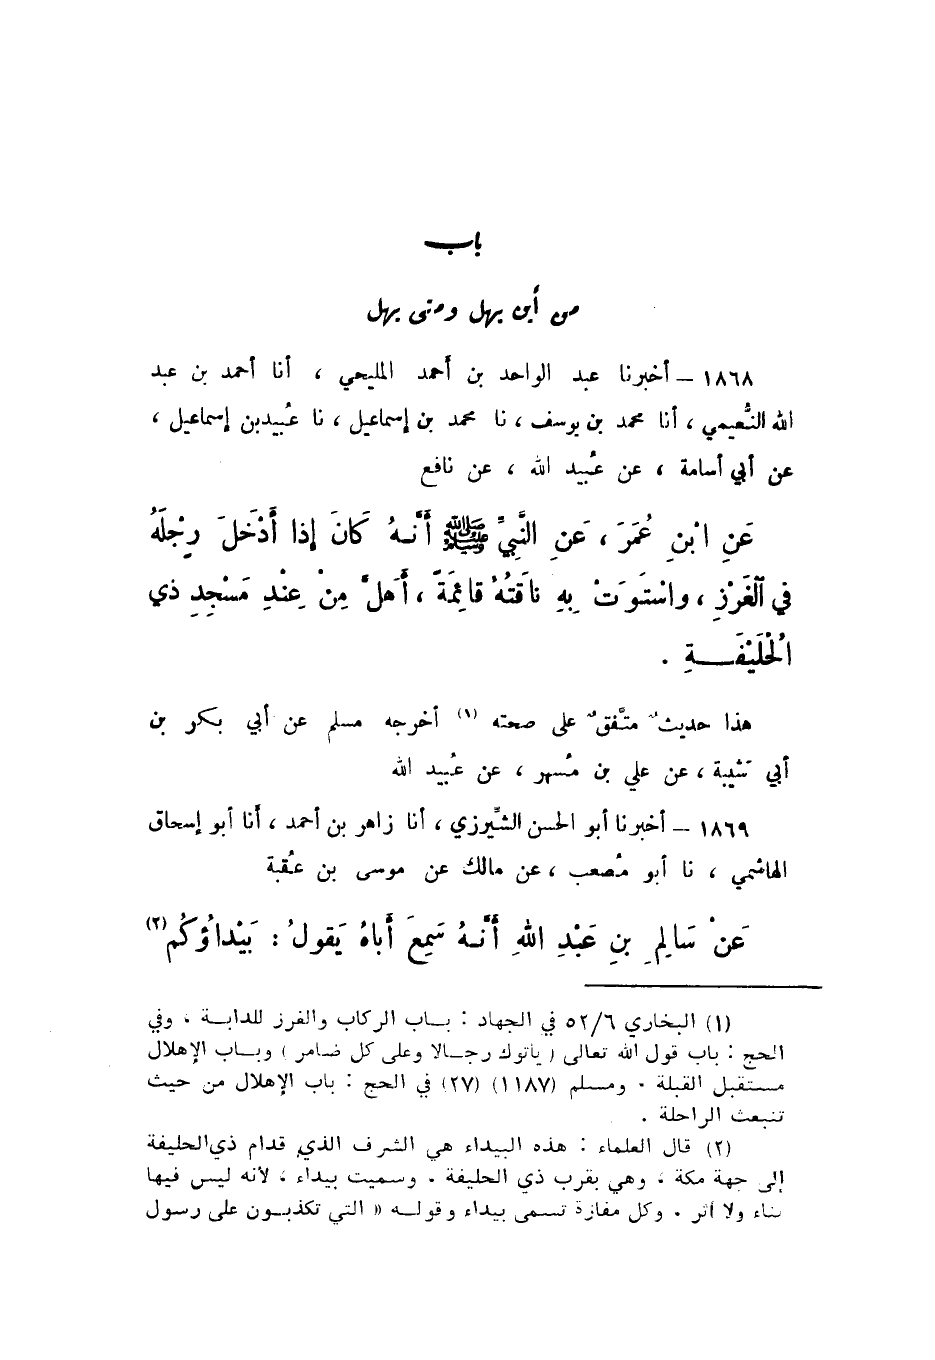 باب
من أين يهل ومتى يهل
١٨٦٨ – أخبرنا عبد الواحد بن أحمد المليحي ، أنا أحمد بن عبد
الله النُّعيمي ، أنا محمد بن يوسف ، نا محمد بن إسماعيل ، نا عُبيد بن إسماعيل ،
عن أبي أسامة ، عن عُبيد الله ، عن نافع
عَنِ ابْنِ عُمَرَ ، عَنِ النَّبِيِّ ﷺ أَنَّهُ كَانَ إذا أَدْخَلَ رِجْلَهُ
في الْغَرْزِ ، واسْتَوَتْ بِهِ ناقَتُهُ قائِمَةً ، أَهَلَّ مِنْ عِنْدِ مَسْجِدِ ذي
الْحُلَيْفَــةِ .
هذا حديثٌ متَّفقٌ على صحته (١) أخرجه مسلم عن أبي بكر بن
أبي شيبة ، عن علي بن مُسهر ، عن عُبيد الله
١٨٦٩ – أخبرنا أبو الحسن الشِّيرزي ، أنا زاهر بن أحمد ، أنا أبو إسحاق
الهاشمي ، نا أبو مُصعب ، عن مالك عن موسى بن عُقبة
عَنْ سَالِمِ بنِ عَبْدِ اللهِ أَنَّهُ سَمِعَ أَباهُ يَقولُ : بَيْداؤُكُم (٢)
(١) البخاري ٥٢/٦ في الجهاد : بــاب الركاب والغرز للدابــة ، وفي
الحج : باب قول الله تعالى ( يأتوك رجــالا وعلى كل ضامر ) وبــاب الإهلال
مستقبل القبلة . ومسلم (١١٨٧) (٢٧) في الحج : باب الإهلال من حيث
تنبعث الراحلة .
(٢) قال العلماء : هذه البيداء هي الشرف الذي قدام ذي الحليفة
إلى جهة مكة ، وهي بقرب ذي الحليفة . وسميت بيداء ، لأنه ليس فيها
بناء ولا أثر . وكل مفازة تسمى بيداء وقولــه « التي تكذبــون على رسول